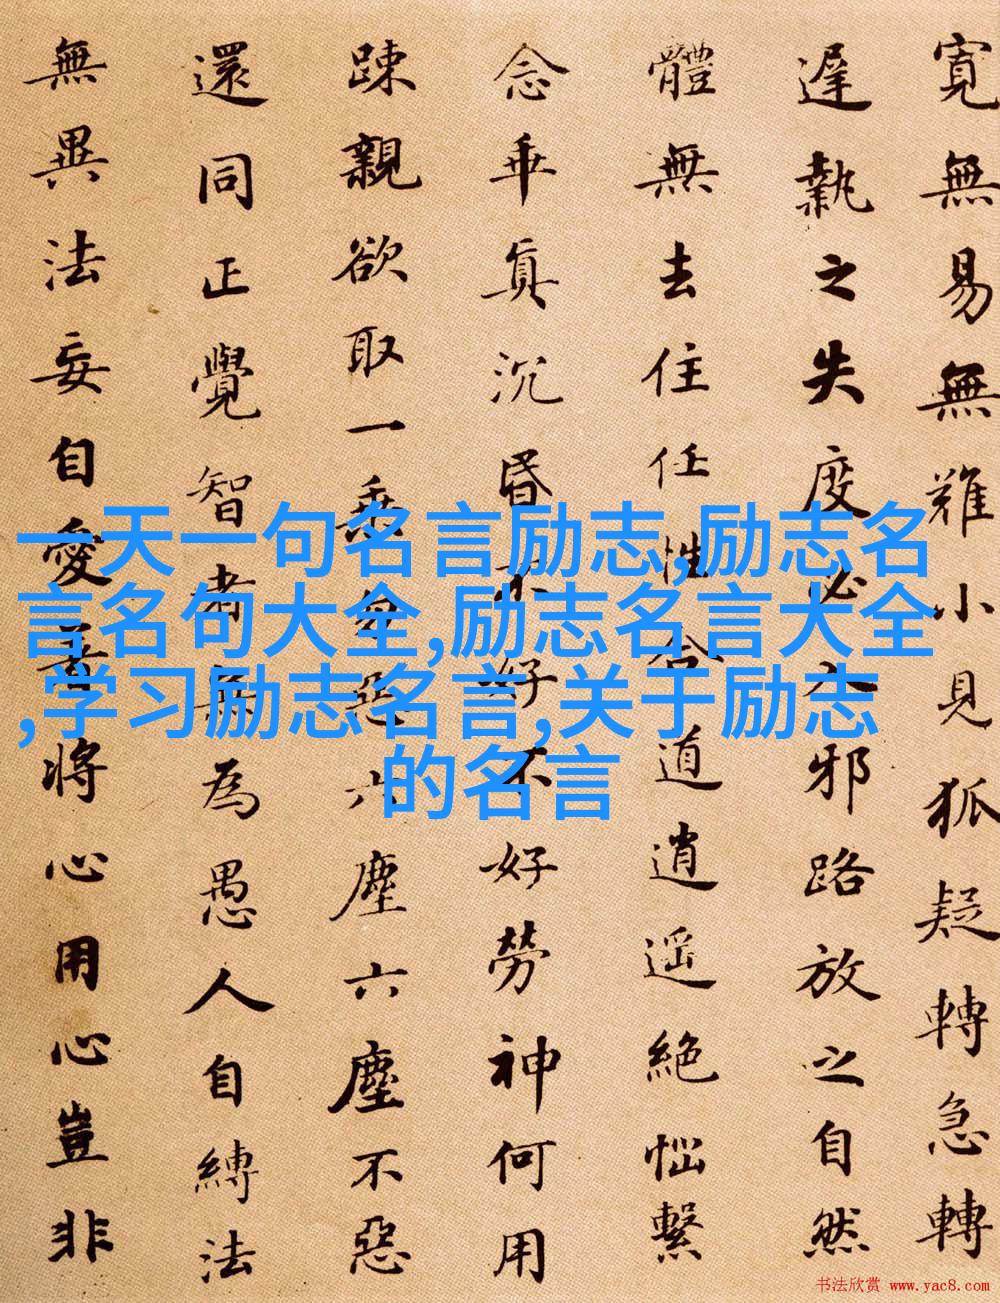 寬無易無難小見狐疑轉急轉
遲執之失度必入邪路放之自然
體無去住任性合道逍遥絕惱繫
念乖真沉昏不好不好勞神何用
踈親欲取一乘勿惡六塵六塵不惡
還同正覺智者無為愚人自縛法
無異法妄自愛著將心用心豈非
一天一句名言励志,励志名
言名句大全,励志名言大全
,学习励志名言,关于励志
的名言
书法欣赏 www.yac8.com